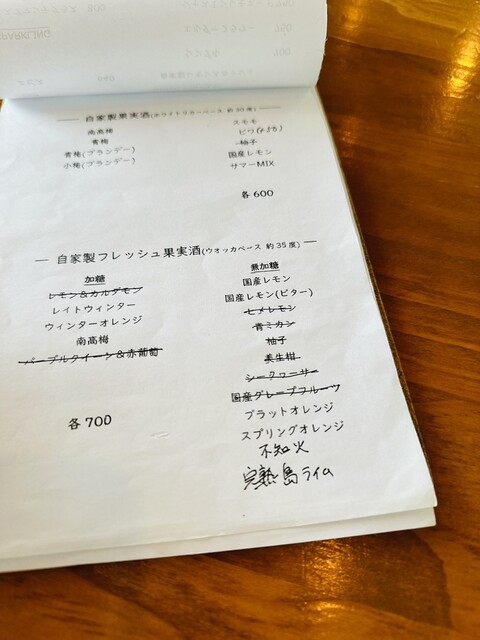 — 自家製果実酒(ホワイトリカーベース 約30度) —
南高梅
青梅
青梅(ブランデー)
小梅(ブランデー)
スモモ
ビワ(+50)
柚子
国産レモン
サマーMIX
各600
— 自家製フレッシュ果実酒(ウオッカベース 約35度) —
加糖
レモン&カルダモン
レイトウィンター
ウィンターオレンジ
南高梅
パープルクイーン&赤葡萄
各700
無加糖
国産レモン
国産レモン(ビター)
セメレモン
青ミカン
柚子
美生柑
シークワーサー
国産グレープフルーツ
ブラットオレンジ
スプリングオレンジ
不知火
完熟島ライム